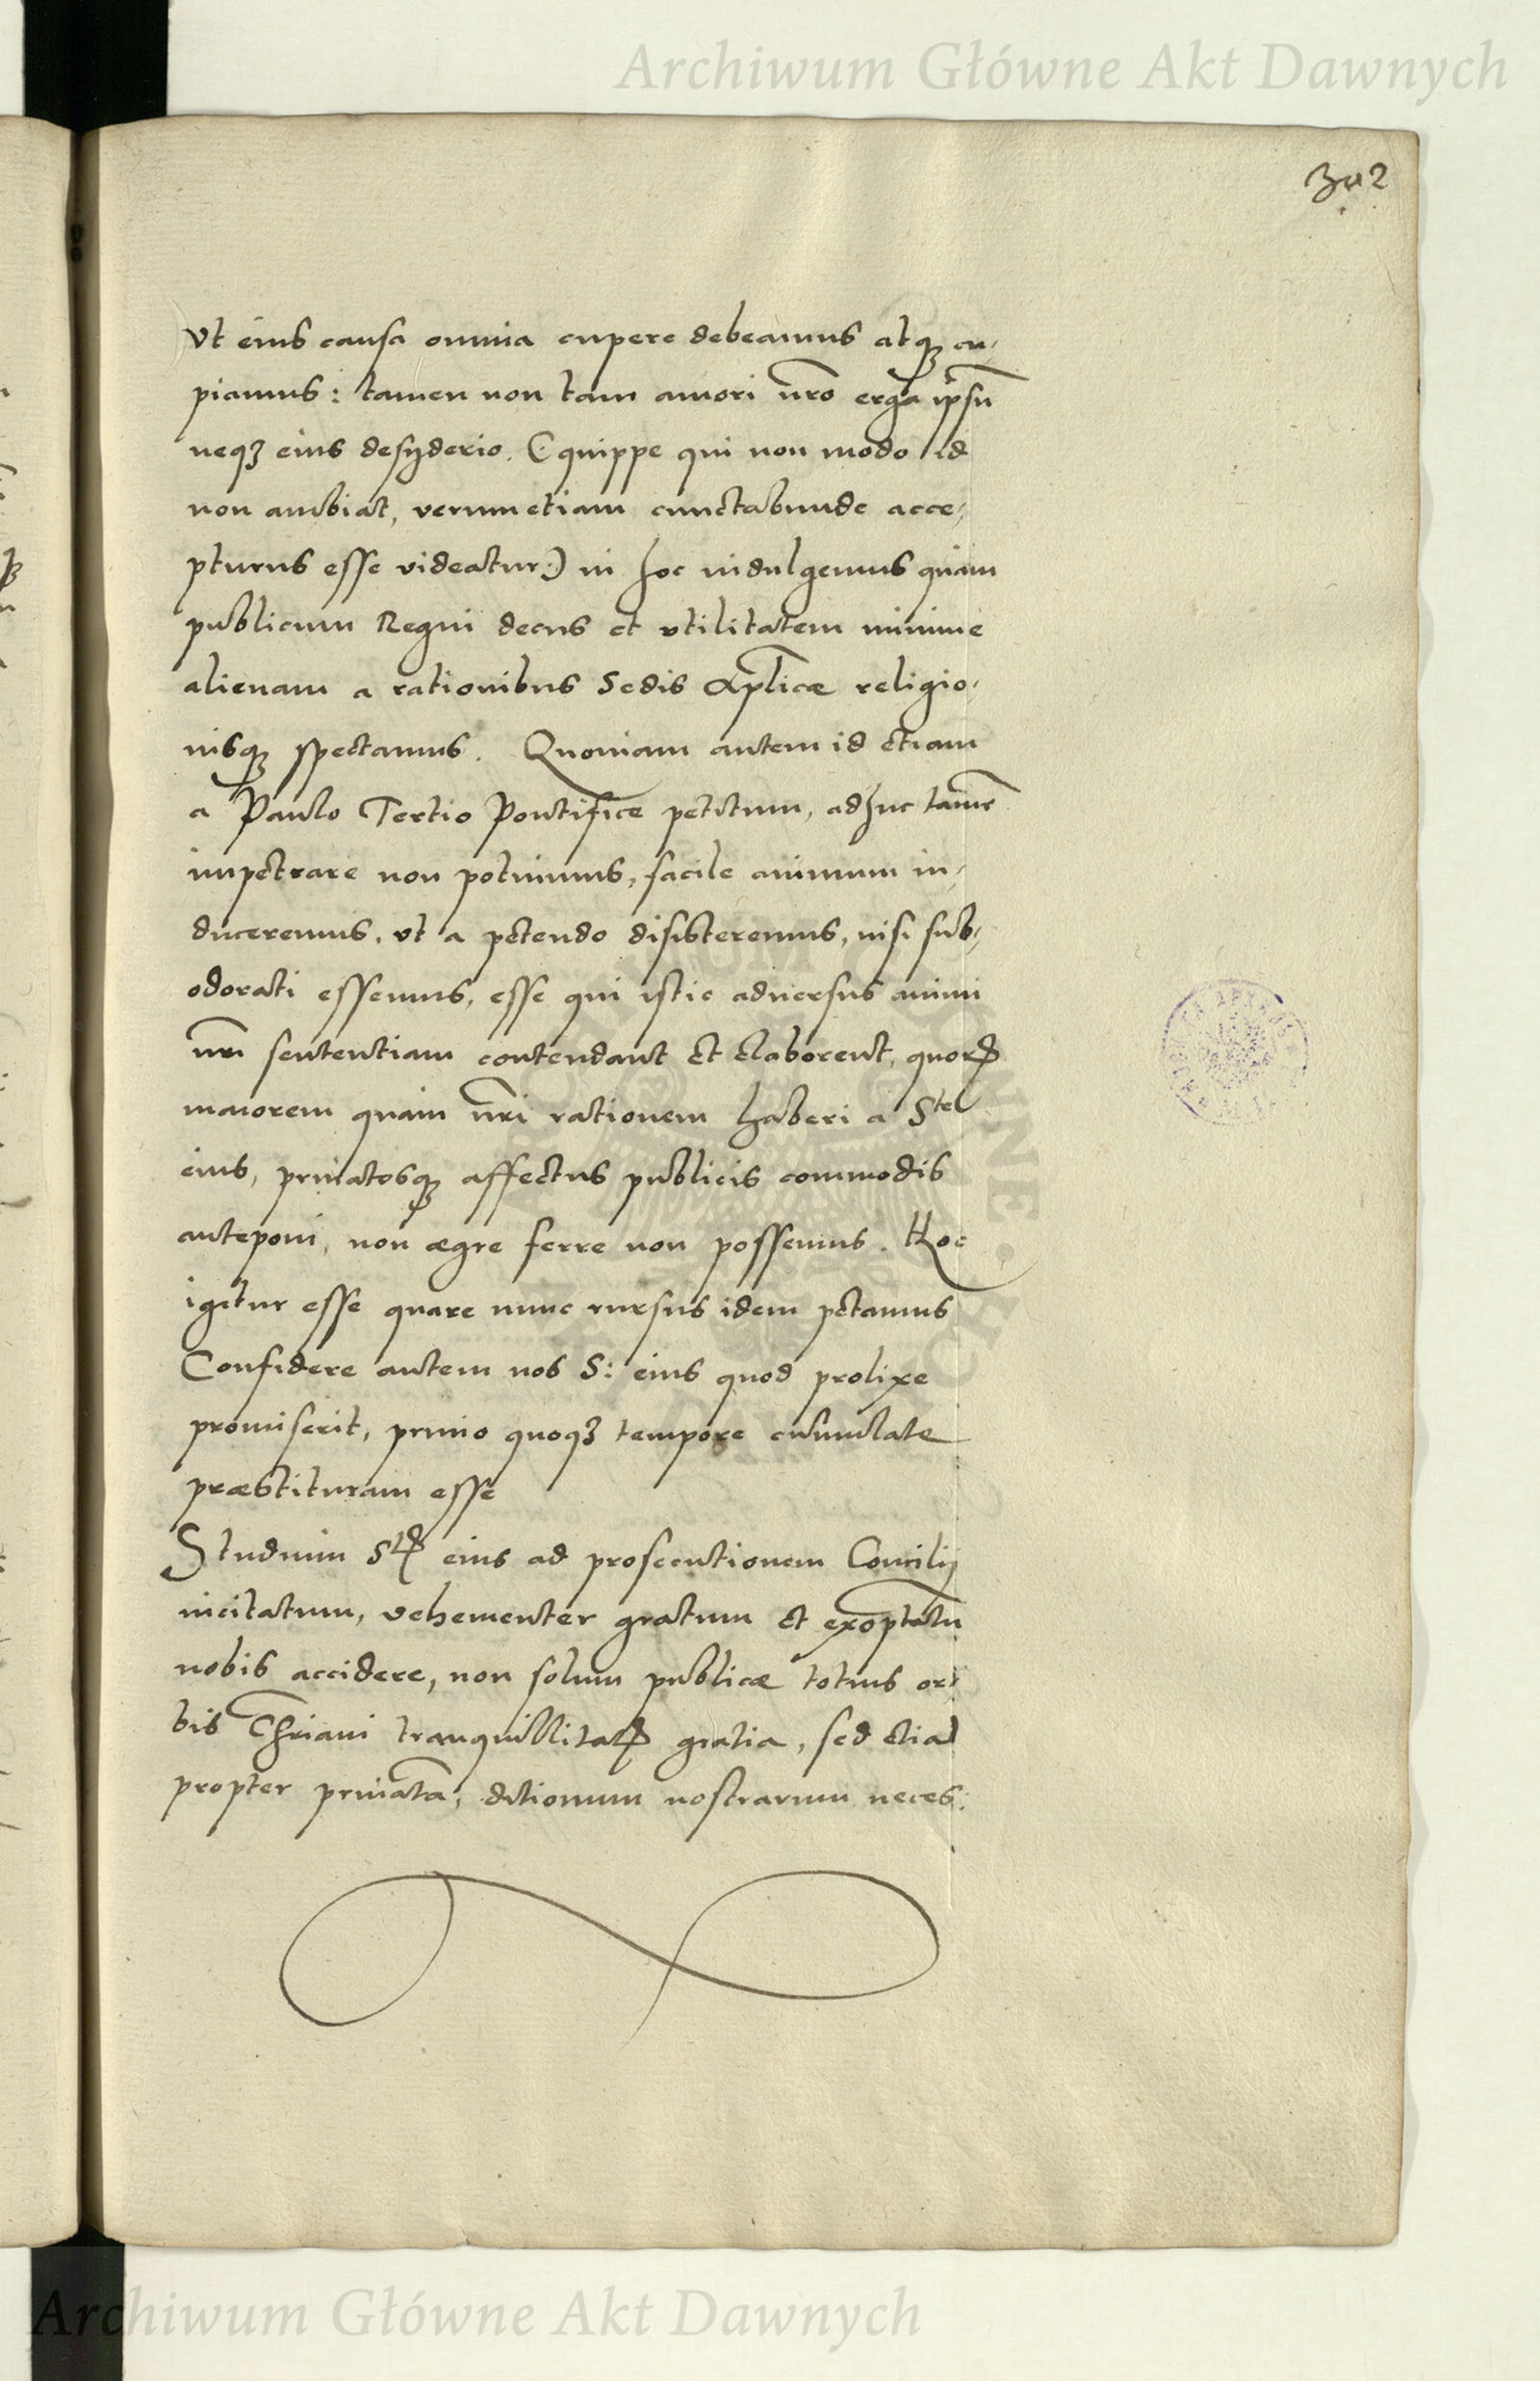 Archiwum Główne Akt Dawnych
302
Vt eius causa omnia cupere debeamus atq₃ cu-
piamus: tamen non tam amori nr̃o erga ipsũ
neq₃ eius desyderio. (quippe qui non modo id
non ambiat, verumetiam cunctabunde acce-
pturus esse videatur:) in hoc indulgemus quàm
publicum Regni decus et vtilitatem minime
alienam a rationibus Sedis Ap̃licæ religio-
nisq₃ spectamus. Quoniam autem id etiam
a Paulo Tertio Pontifice petitum, adhuc tamẽ
impetrare non potuimus, facile animum in-
duceremus, vt a petendo desisteremus, nisi sub-
odorati essemus, esse qui istic aduersus animi
nr̃i sententiam contendant et elaborent, quoꝝ
maiorem quàm nr̃i rationem haberi a Ste
eius, priuatosq₃ affectus publicis commodis
anteponi, non ægre ferre non possemus. Hoc
igitur esse quare nunc rursus idem petamus
Confidere autem nos S: eius quod prolixe
promiserit, primo quoq₃ tempore cumulate
præstituram esse
Studium Stis eius ad prosecutionem Concilij
incitatum, vehementer gratum et exoptatũ
nobis accidere, non solum publicæ totius or-
bis Chr̃iani tranquillitatis gratia, sed etiã
propter priuatã, ditionum nostrarum neces:
Archiwum Główne Akt Dawnych